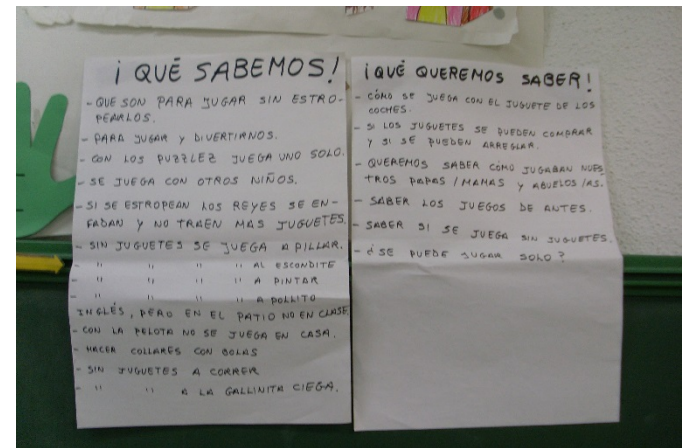 ¡ QUÉ SABEMOS!
- QUE SON PARA JUGAR SIN ESTRO-
PEARLOS.
- PARA JUGAR Y DIVERTIRNOS.
- CON LOS PUZZLEZ JUEGA UNO SOLO.
- SE JUEGA CON OTROS NIÑOS.
- SI SE ESTROPEAN LOS REYES SE EN-
FADAN Y NO TRAEN MAS JUGUETES.
- SIN JUGUETES SE JUEGA A PILLAR.
- " " " " AL ESCONDITE
- " " " " A PINTAR
- " " " " A POLLITO
INGLÉS, PERO EN EL PATIO NO EN CLASE.
- CON LA PELOTA NO SE JUEGA EN CASA.
- HACER COLLARES CON BOLAS
- SIN JUGUETES A CORRER
- " " A LA GALLINITA CIEGA.
¡QUÉ QUEREMOS SABER!
- CÓMO SE JUEGA CON EL JUGUETE DE LOS
COCHES.
- SI LOS JUGUETES SE PUEDEN COMPRAR
Y SI SE PUEDEN ARREGLAR.
- QUEREMOS SABER CÓMO JUGABAN NUES
TROS PAPAS /MAMAS Y ABUELOS /AS.
- SABER LOS JUEGOS DE ANTES.
- SABER SI SE JUEGA SIN JUGUETES.
- ¿SE PUEDE JUGAR SOLO?